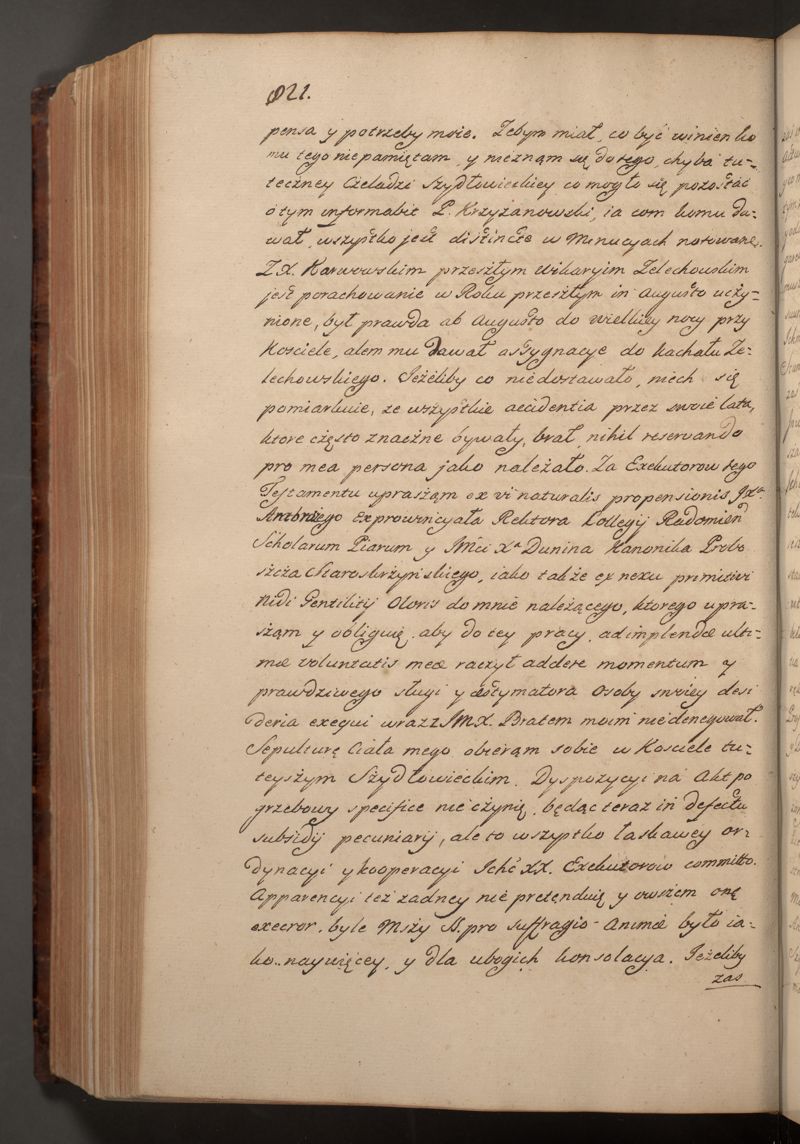 822.
pensa y potrzeby moie. Żebym miał, co być winien ko
mu tego niepamiętam, y nieznąm się do tego, chyba tu-
teczney Czeladzi Szydłowieckiey co mogło się pozostać
o tym informabit P. Krzyżanowski, ia com komu da-
wał, wszystko jest distincte w Minucyach notowane.
Z X. Karwowskim przeszłym Wikaryim Zelechowskim
jest porachowanie w Roku przeszłym in Augusto uczy-
nione, był prawda ab Augusto do Wielkiey nocy przy
Kosciele, alem mu dawał assygnacye do kachału Ze-
lechowskiego. Jeżeliby co niedostawało, niech się
pomiarkuie, że wszystkie accidentia przez swoie lata,
ktore często znaczne bywały, brał, nihil reservando
pro mea persona jako należało. Za Exekutorow tego
Testamentu uprasząm ex vi naturalis propensionis Jxa.
Ambrożego Exprowincyała Rektora Kollegij Radomień
Scholarum Piarum y JMci Xa Dunina Kanonika Probo
szcza Skaroskrżyńskiego, iako także ex nexu primitivi
Nidi Gentilitij Oloris do mnie należącego, ktorego upra-
sząm y obliguię, aby do tey pracy, adimplendæ ulti-
mæ voluntatis meæ raczył addere momentum y
prawdziwego sługi y æstymatora osoby swoiey desi
deria exequi wraz z JMX. Bratem moim niedenegował.
Sepulturę Ciała mego obierąm sobie w Kosciele tu-
teyszym Szydłowieckim. Dyspozycyi na Akt po
grzebowy specifice nie czynię, będąc teraz in defectu
subsidij pecuniarij, ale to wszystko łaskawey or-
dynacyi y kooperacyi Ichć XX. Exekutorow committo.
Apparencyi też żadney nie pretenduię y owszem onę
execror, byle Mszy S. pro suffragio Animæ było ia-
ko naywięcey, y dla ubogich konsolacya. Jeżeliby
zas